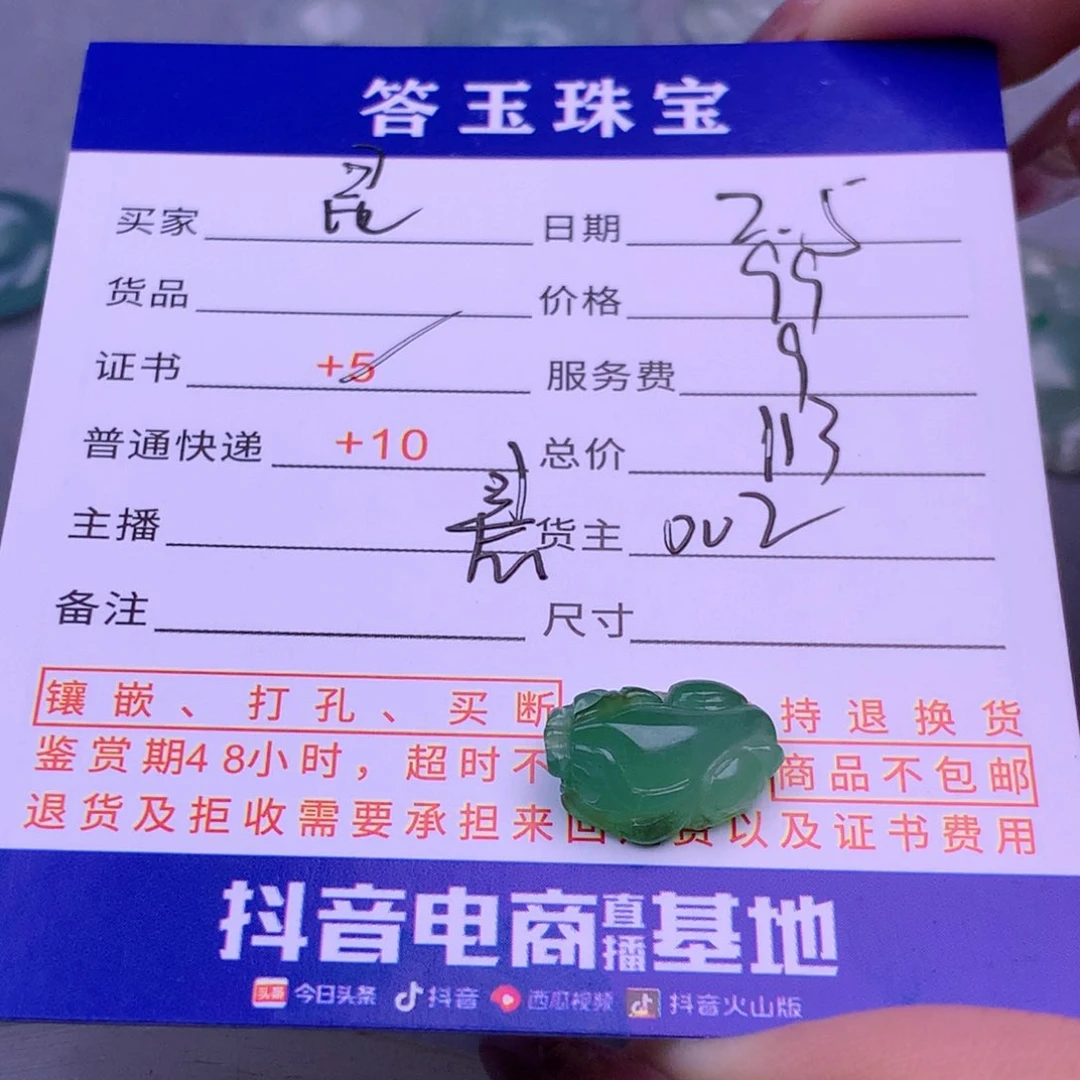 答玉珠宝
买家 日期 2.5
货品 价格 99
证书 +5 服务费 9
普通快递 +10 总价 113
主播 货主 002
备注 尺寸
镶嵌、打孔、买断 持退换货
鉴赏期48小时，超时不 商品不包邮
退货及拒收需要承担来回 费以及证书费用
抖音电商直播基地
头条 今日头条 抖音 西瓜视频 抖音火山版